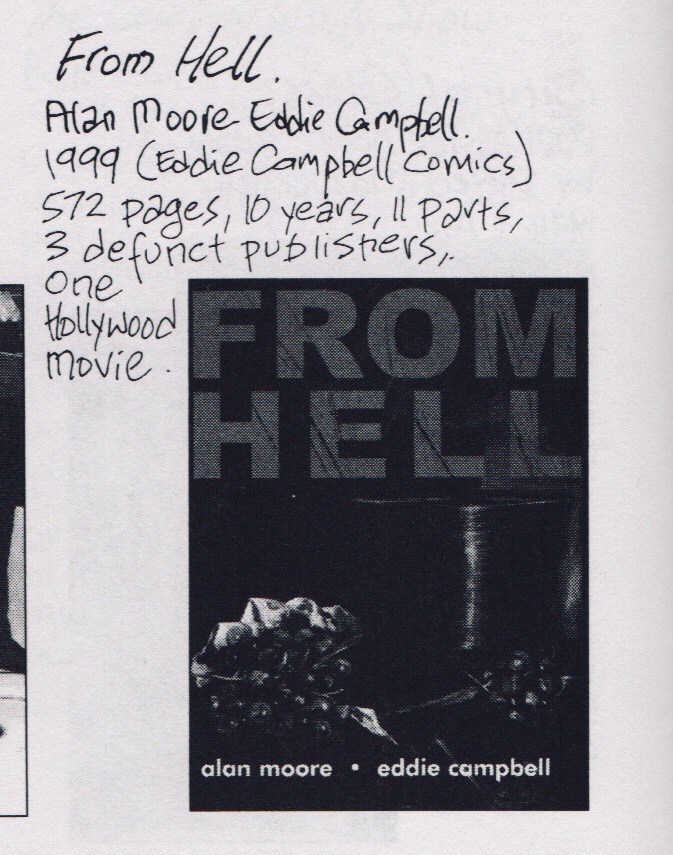 From Hell.
Alan Moore Eddie Campbell.
1999 (Eddie Campbell Comics)
572 pages, 10 years, 11 parts,
3 defunct publishers,.
One
Hollywood
movie.
FROM
HELL
alan moore • eddie campbell